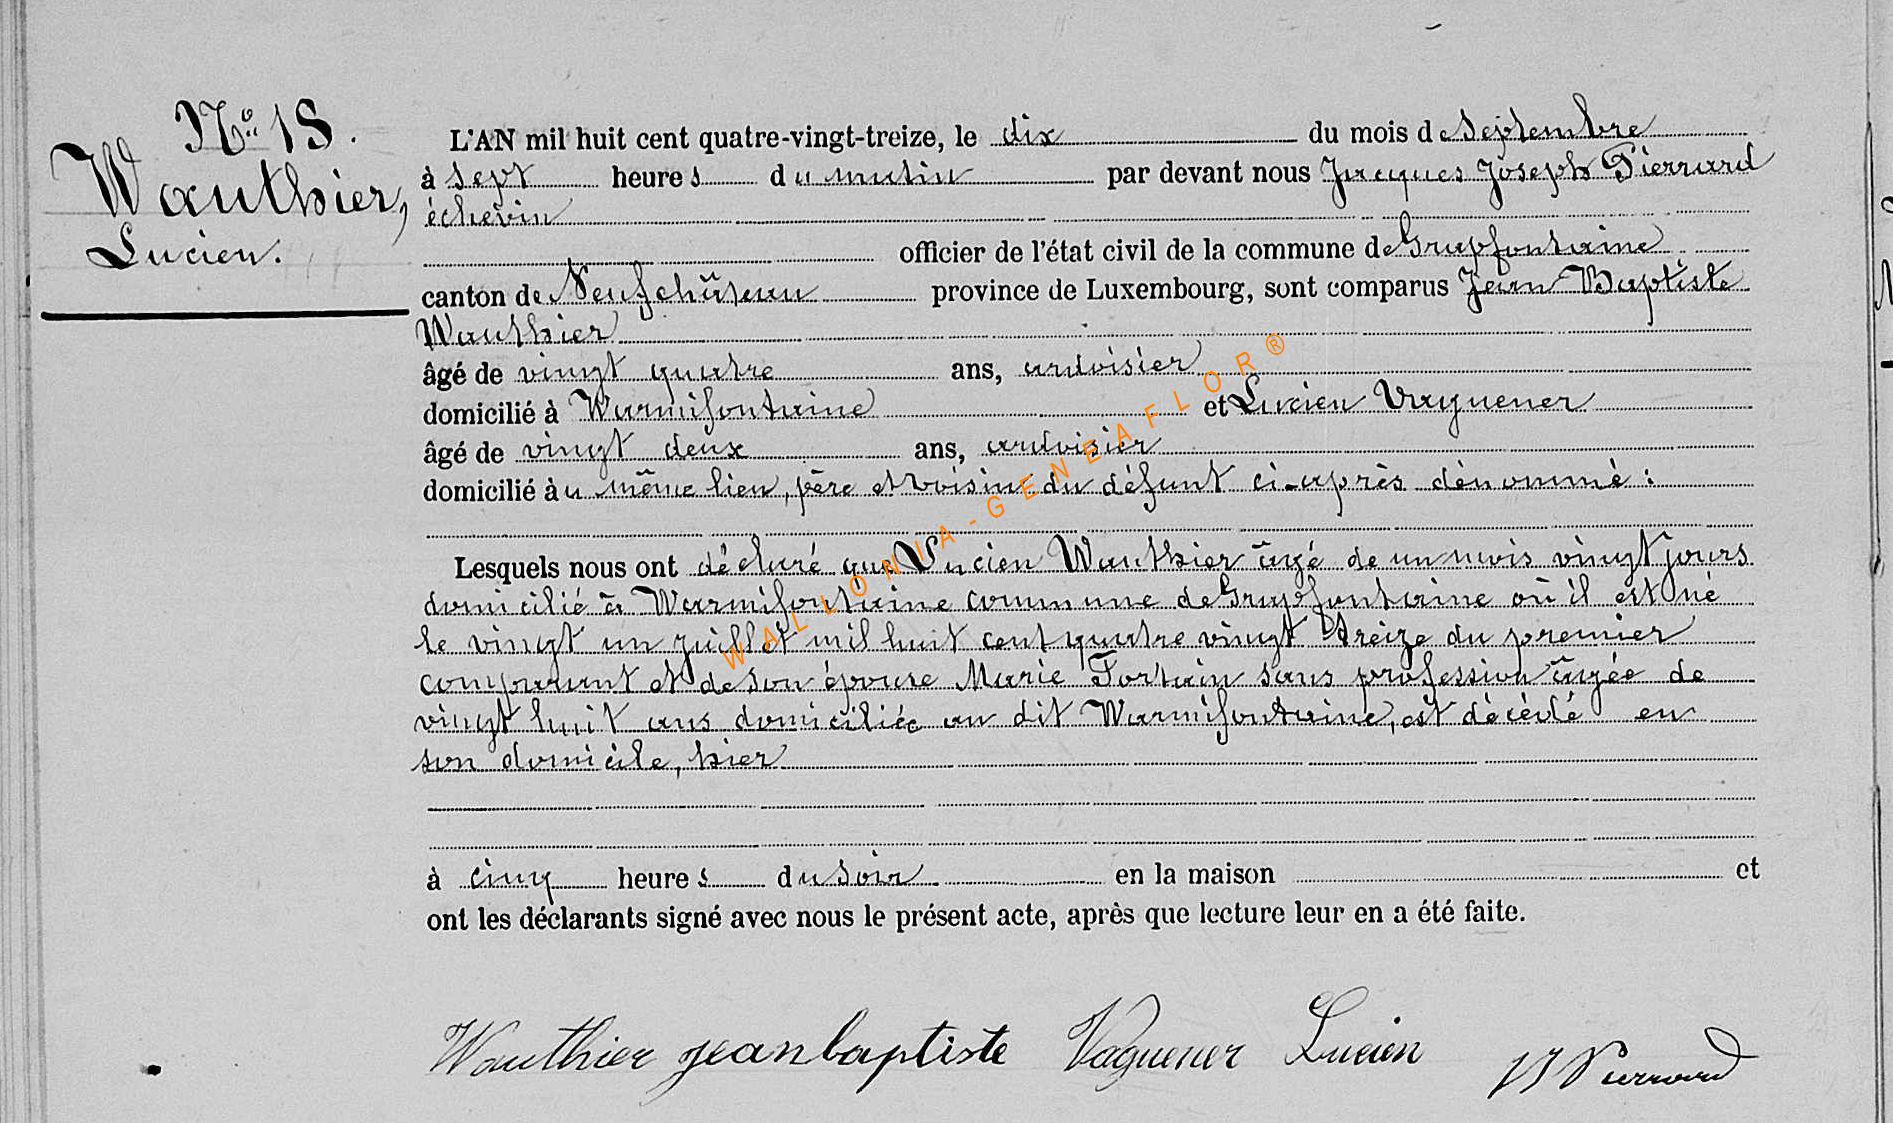 N° 18.
Wauthier,
Lucien.
L'AN mil huit cent quatre-vingt-treize, le dix du mois de Septembre
à sept heures du matin par devant nous Jacques Joseph Pierrard
échevin
officier de l'état civil de la commune de Grapfontaine
canton de Neufchâteau province de Luxembourg, sont comparus Jean Baptiste
Wauthier
âgé de vingt quatre ans, ardoisier
domicilié à Warmifontaine et Lucien Vaguener
âgé de vingt deux ans, ardoisier
domicilié au même lieu, père et voisin du défunt ci-après dénommé :
Lesquels nous ont déclaré que Lucien Wauthier âgé de un mois vingt jours
domicilié à Warmifontaine commune de Grapfontaine où il est né
le vingt un juillet mil huit cent quatre vingt treize du premier
comparant et de son épouse Marie Fortain sans profession âgée de
vingt huit ans domiciliée au dit Warmifontaine, est décédé en
son domicile, hier
à cinq heures du soir en la maison et
ont les déclarants signé avec nous le présent acte, après que lecture leur en a été faite.
Wauthier jean baptiste Vaguener Lucien JJ Pierrard
WALLONIA-GENEAFLOR®